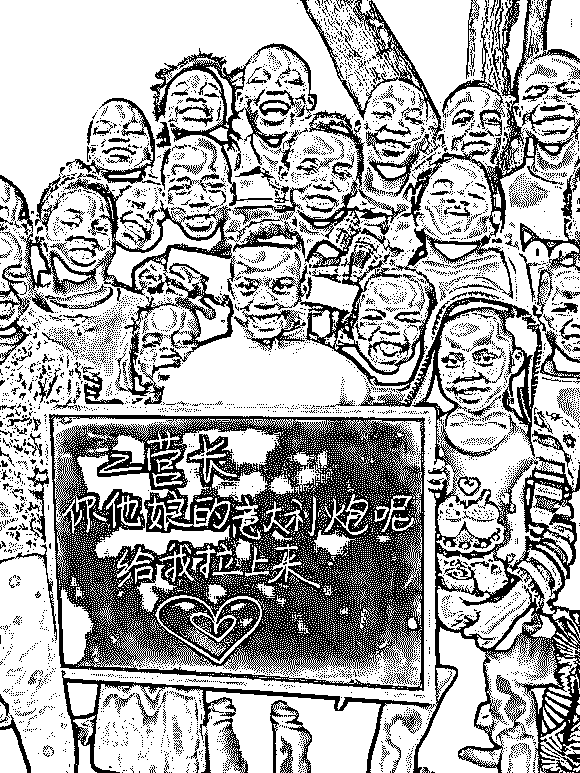 二营长
你他娘的意大利炮呢
给我拉上来